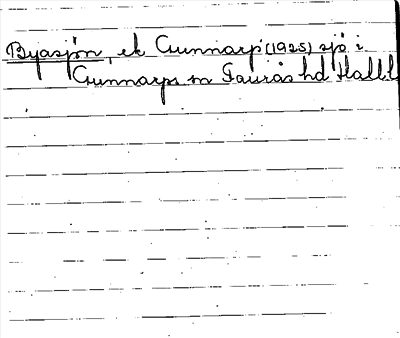 Byasjön, ek Gunnarp (1925) sjö i
Gunnarps sn Faurås hd Hall.l